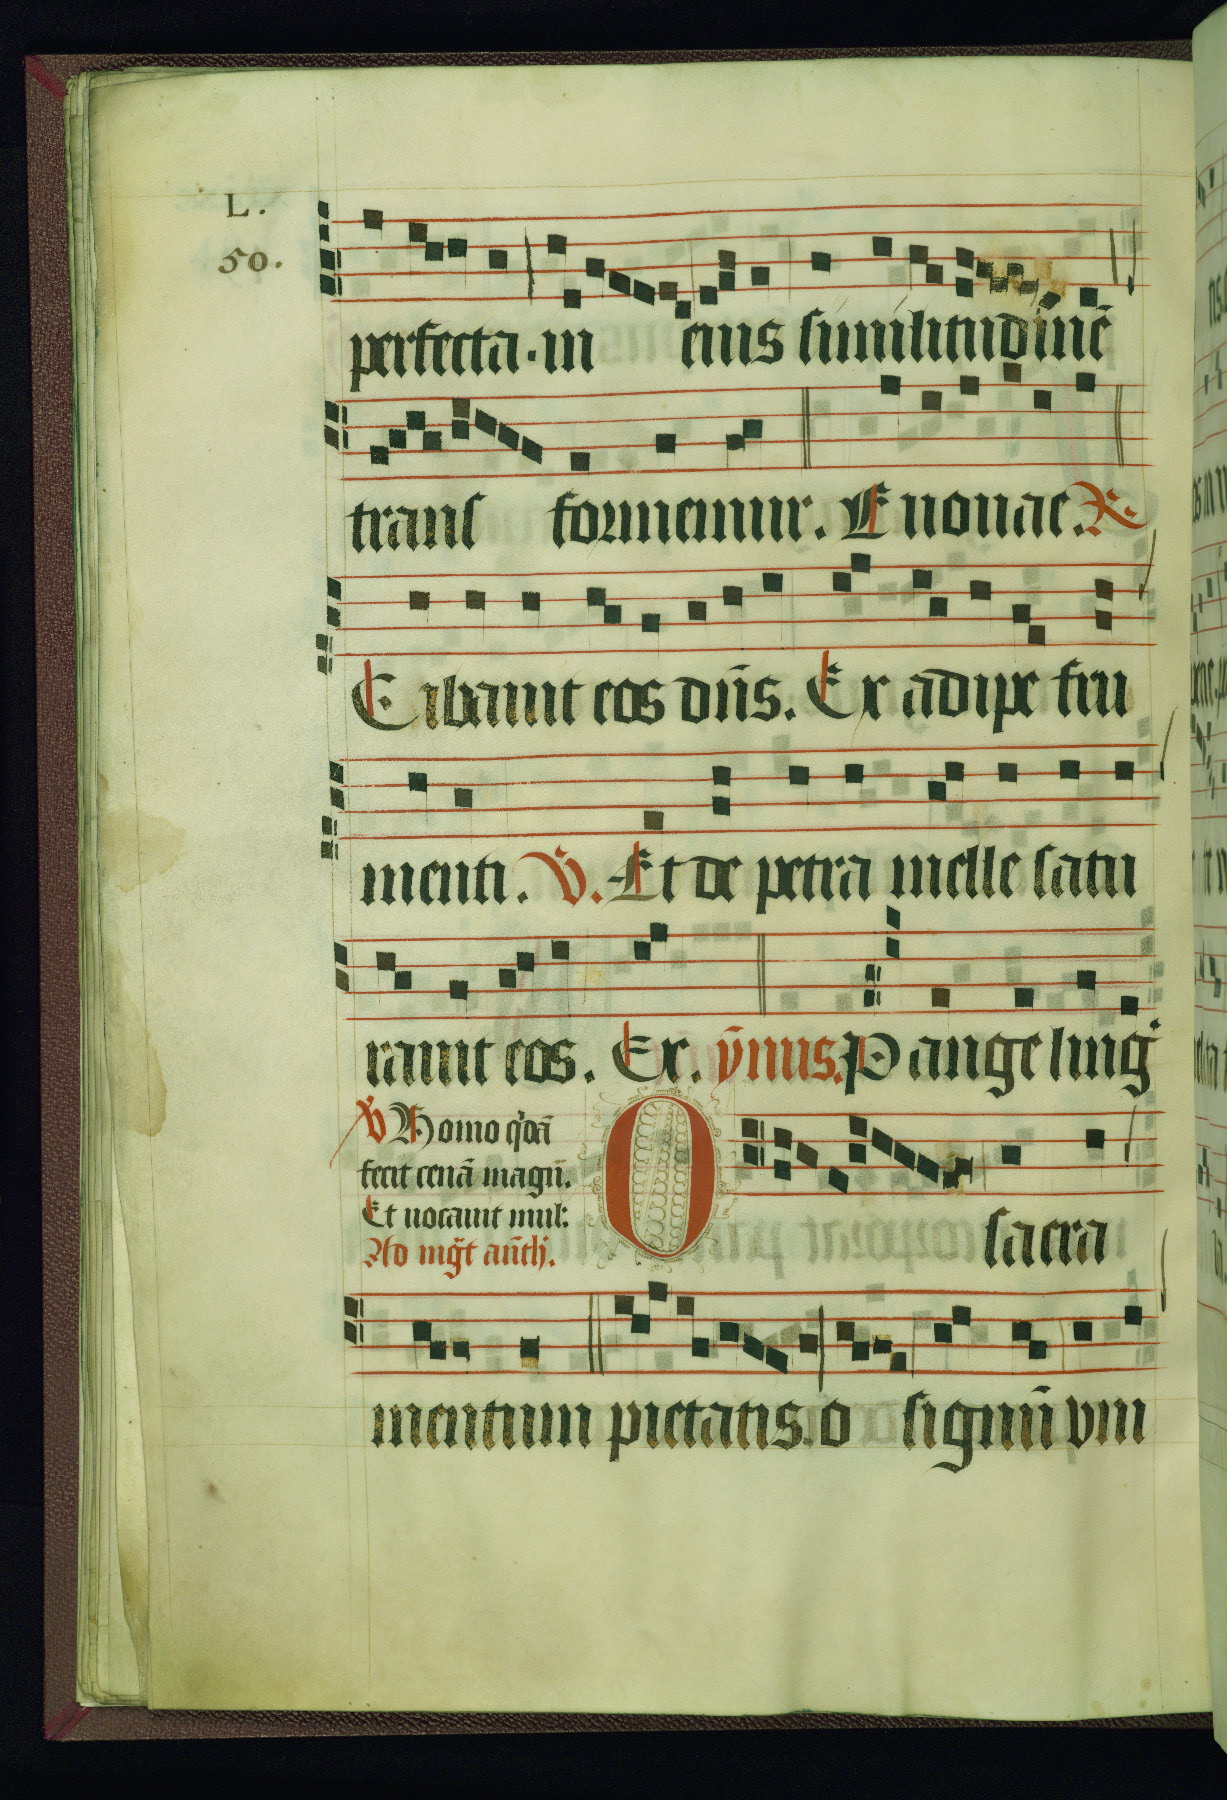 L.
50.
perfecta. in eius similitudinē
trans formemur. Euouae. R.
Cibauit eos dn̄s. Ex adipe fru
menti. V̇. Et de petra melle satu
rauit eos. Ex. ẏmus. Pange ling
V̇ Homo qdā
fecit cenā magn̄.
Et uocauit mul:
Ad mg̅t ant̄h.
O sacra
mentum pietatis. o signū vni